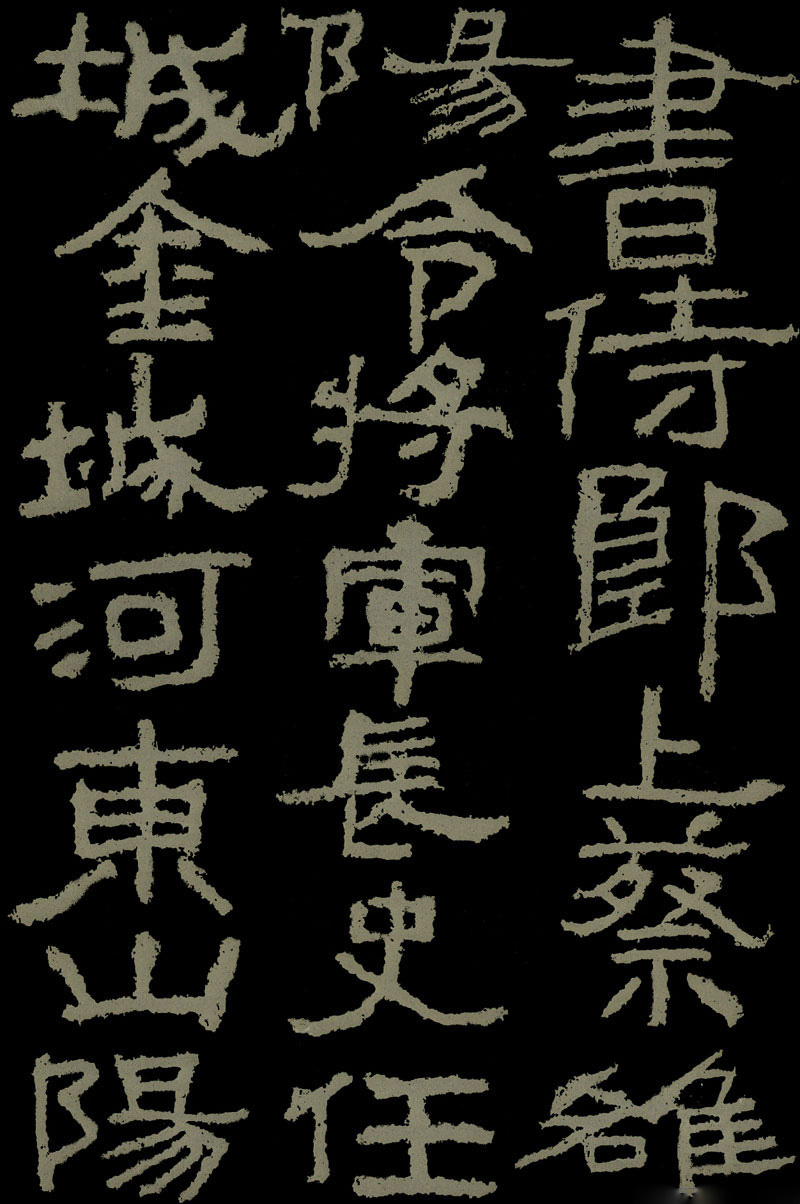 書侍郎上蔡雒
陽令將軍長史任
城金城河東山陽